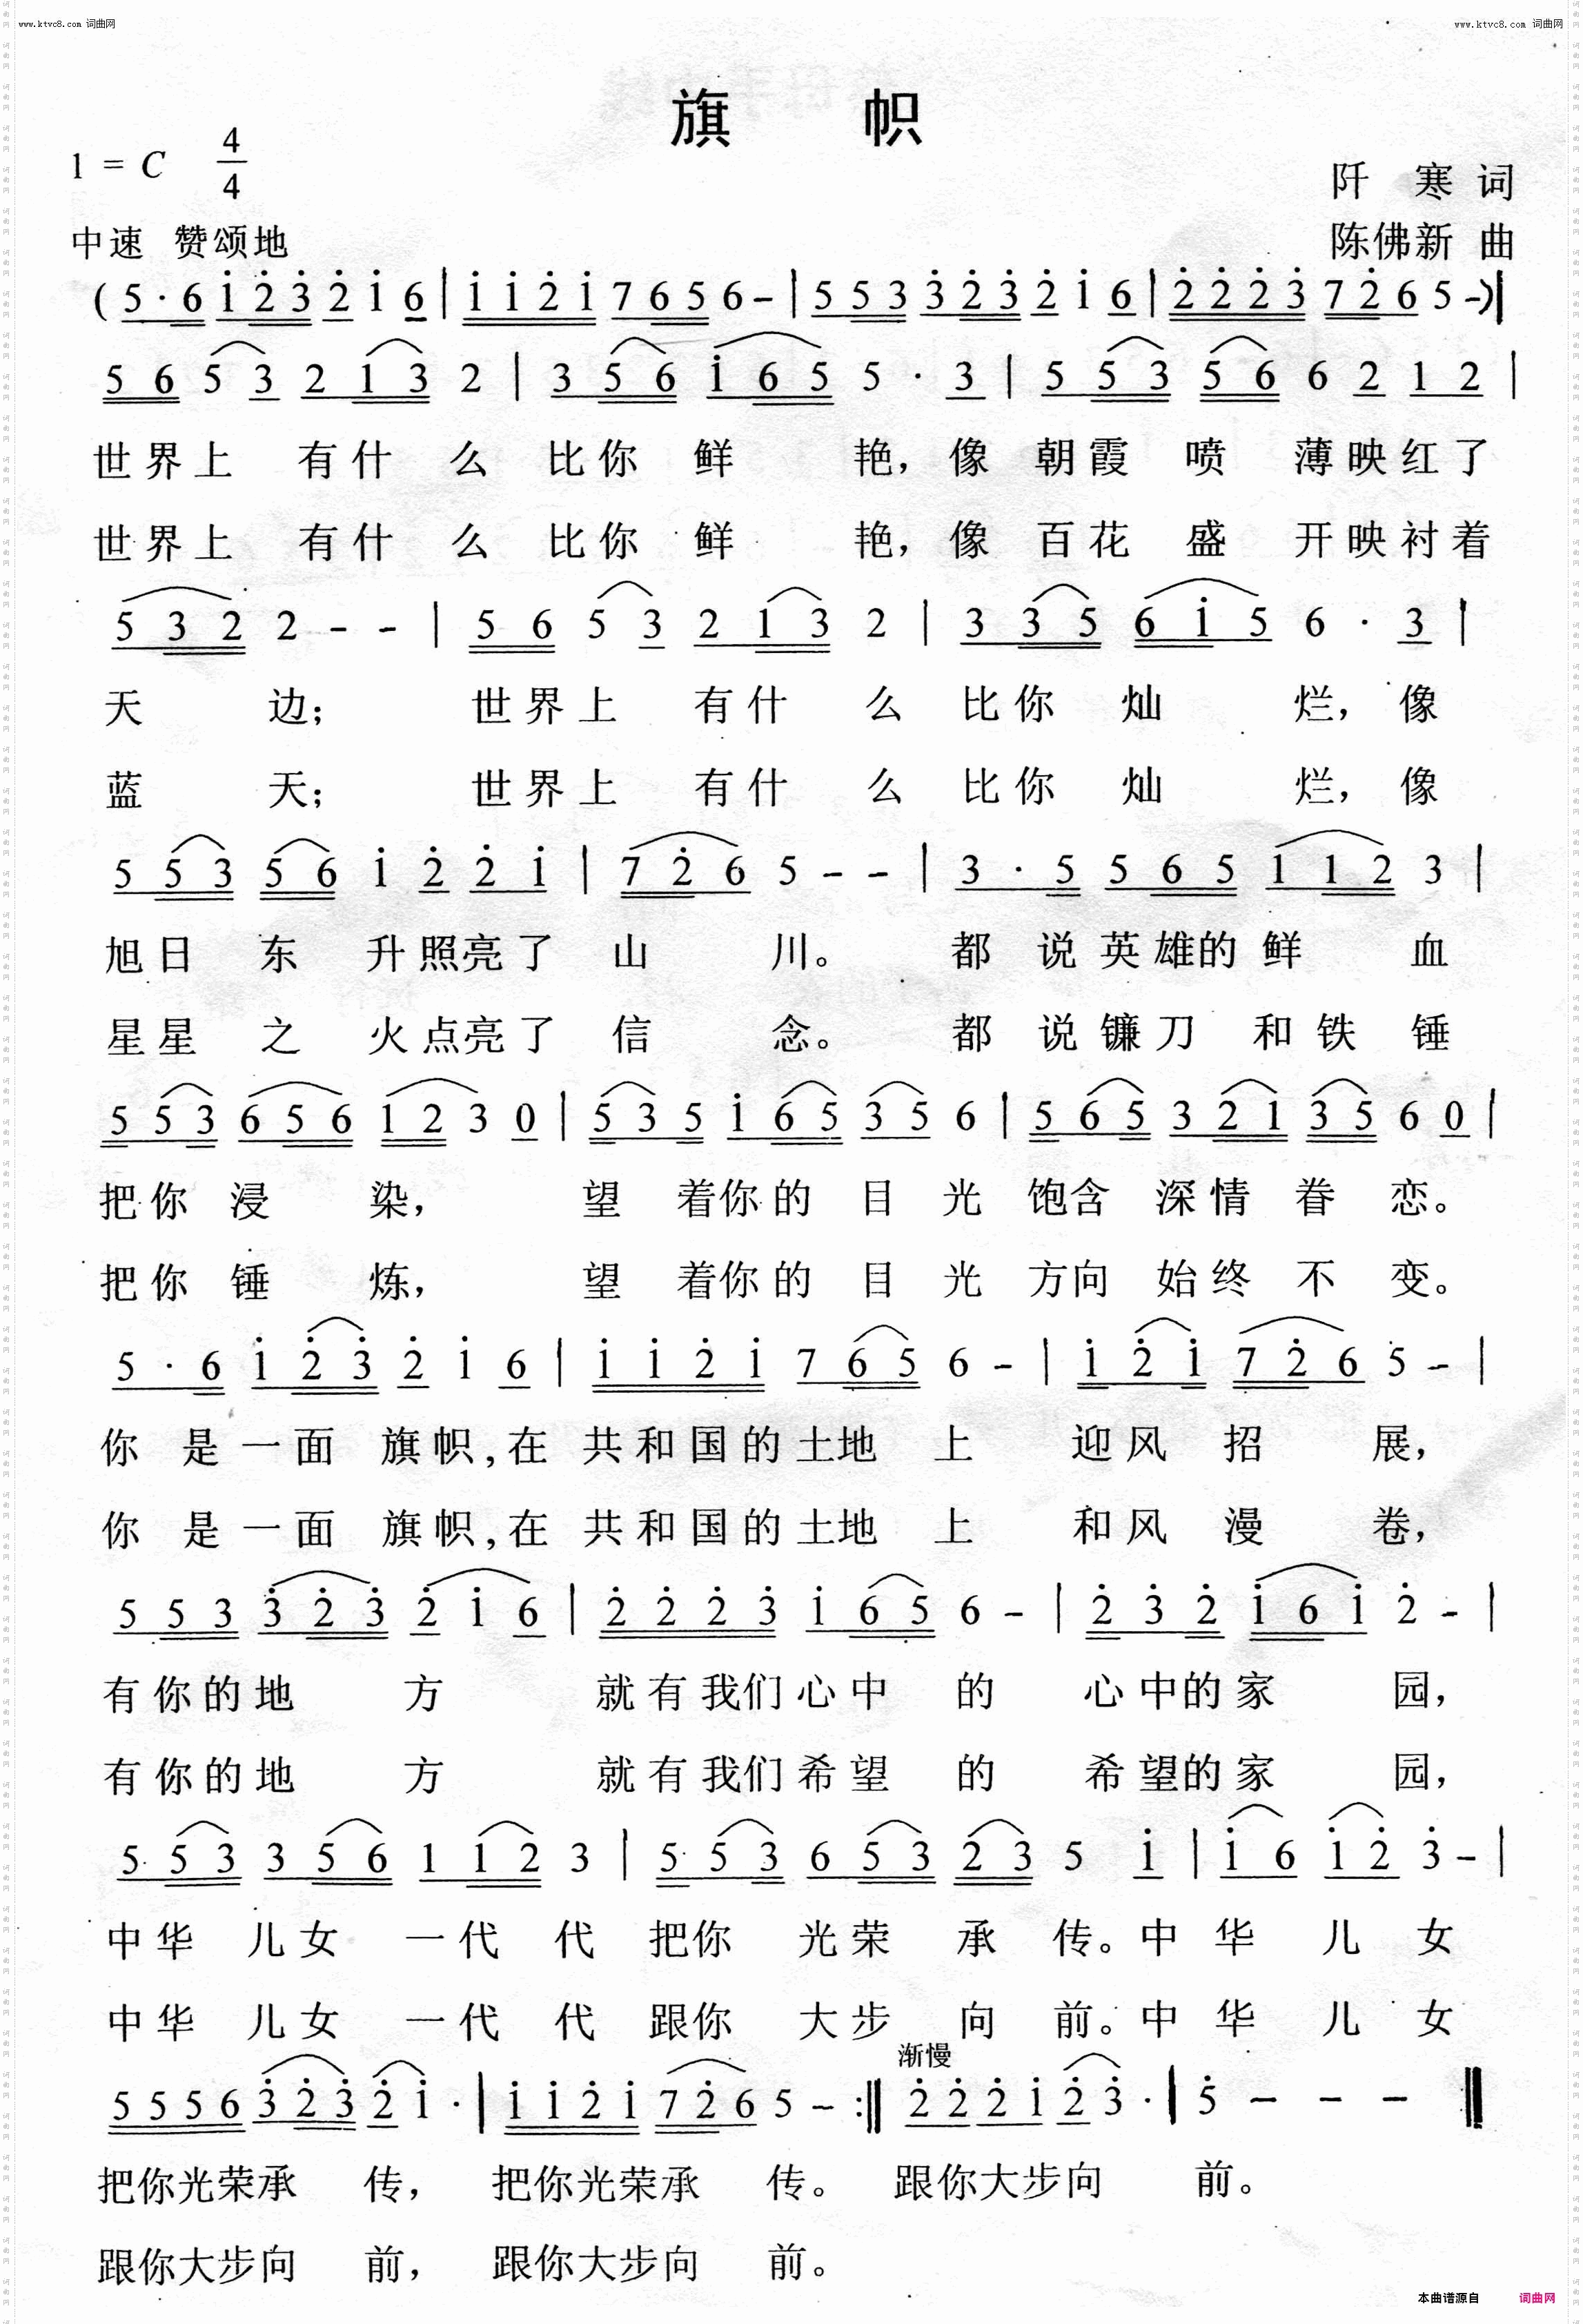 www.ktvc8.com 词曲网
www.ktvc8.com 词曲网
旗 帜
1 = C 4/4
阡 寒 词
中速 赞颂地
陈佛新 曲
( 5 · 6 1̇ 2̇ 3̇ 2̇ 1̇ 6 | 1̇ 1̇ 2̇ 1̇ 7 6 5 6 – | 5 5 3 3̇ 2̇ 3̇ 2̇ 1̇ 6 | 2̇ 2̇ 2̇ 3̇ 7 2̇ 6 5 – ) |
5 6 5 3 2 1 3 2 | 3 5 6 1̇ 6 5 5 · 3 | 5 5 3 5 6 6 2 1 2 |
世界上 有什么 比你 鲜 艳, 像 朝霞 喷 薄映红了
世界上 有什么 比你 鲜 艳, 像 百花 盛 开映衬着
5 3 2 2 – – | 5 6 5 3 2 1 3 2 | 3 3 5 6 1̇ 5 6 · 3 |
天 边; 世界上 有什么 比你 灿 烂, 像
蓝 天; 世界上 有什么 比你 灿 烂, 像
5 5 3 5 6 1̇ 2̇ 2̇ 1̇ | 7 2̇ 6 5 – – | 3 · 5 5 6 5 1 1 2 3 |
旭日 东 升照亮了 山 川。 都 说英雄的鲜 血
星星 之 火点亮了 信 念。 都 说镰刀 和铁 锤
5 5 3 6 5 6 1 2 3 0 | 5 3 5 1̇ 6 5 3 5 6 | 5 6 5 3 2 1 3 5 6 0 |
把你 浸 染, 望 着你的 目 光 饱含 深情 眷 恋。
把你 锤 炼, 望 着你的 目 光 方向 始终 不 变。
5 · 6 1̇ 2̇ 3̇ 2̇ 1̇ 6 | 1̇ 1̇ 2̇ 1̇ 7 6 5 6 – | 1̇ 2̇ 1̇ 7 2̇ 6 5 – |
你 是一面 旗帜,在 共和国的土地 上 迎风 招 展,
你 是一面 旗帜,在 共和国的土地 上 和风 漫 卷,
5 5 3 3̇ 2̇ 3̇ 2̇ 1̇ 6 | 2̇ 2̇ 2̇ 3̇ 1̇ 6 5 6 – | 2̇ 3̇ 2̇ 1̇ 6 1̇ 2̇ – |
有你的地 方 就有我们心中 的 心中的家 园,
有你的地 方 就有我们希望 的 希望的家 园,
5 5 3 3 5 6 1 1 2 3 | 5 5 3 6 5 3 2 3 5 1̇ | 1̇ 6 1̇ 2̇ 3̇ – |
中华 儿女 一代 代 把你 光荣 承 传。中 华 儿 女
中华 儿女 一代 代 跟你 大步 向 前。中 华 儿 女
渐慢
5 5 5 6 3̇ 2̇ 3̇ 2̇ 1̇ · | 1̇ 1̇ 2̇ 1̇ 7 2̇ 6 5 – :‖ 2̇ 2̇ 2̇ 1̇ 2̇ 3̇ · | 5̇ – – – ‖
把你光荣承 传, 把你光荣承 传。 跟你大步向 前。
跟你大步向 前, 跟你大步向 前。
本曲谱源自 词曲网